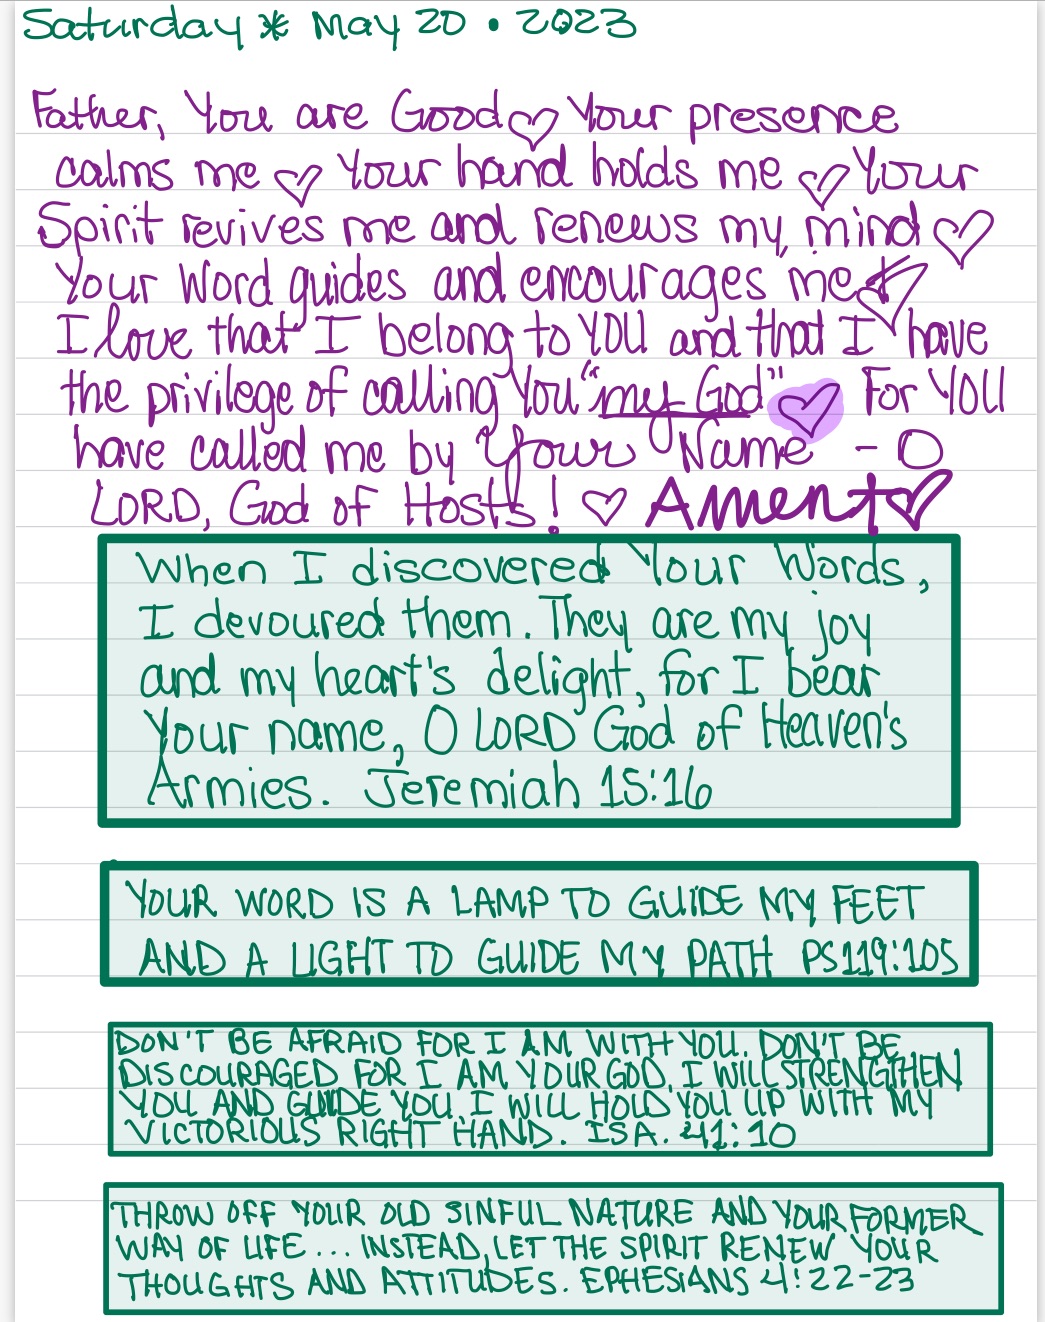 Saturday * May 20 • 2023
Father, You are Good ♡ Your presence
calms me ♡ Your hand holds me ♡ Your
Spirit revives me and renews my mind ♡
Your Word guides and encourages me ♡
I love that I belong to YOU and that I have
the privilege of calling You "my God" ♡ For YOU
have called me by Your Name - O
LORD, God of Hosts! ♡ Amen † ♡
When I discovered Your Words,
I devoured them. They are my joy
and my heart's delight, for I bear
Your name, O LORD God of Heaven's
Armies. Jeremiah 15:16
YOUR WORD IS A LAMP TO GUIDE MY FEET
AND A LIGHT TO GUIDE MY PATH PS119:105
DON'T BE AFRAID FOR I AM WITH YOU. DON'T BE
DISCOURAGED FOR I AM YOUR GOD. I WILL STRENGTHEN
YOU AND GUIDE YOU. I WILL HOLD YOU UP WITH MY
VICTORIOUS RIGHT HAND. ISA. 41:10
THROW OFF YOUR OLD SINFUL NATURE AND YOUR FORMER
WAY OF LIFE... INSTEAD, LET THE SPIRIT RENEW YOUR
THOUGHTS AND ATTITUDES. EPHESIANS 4:22-23